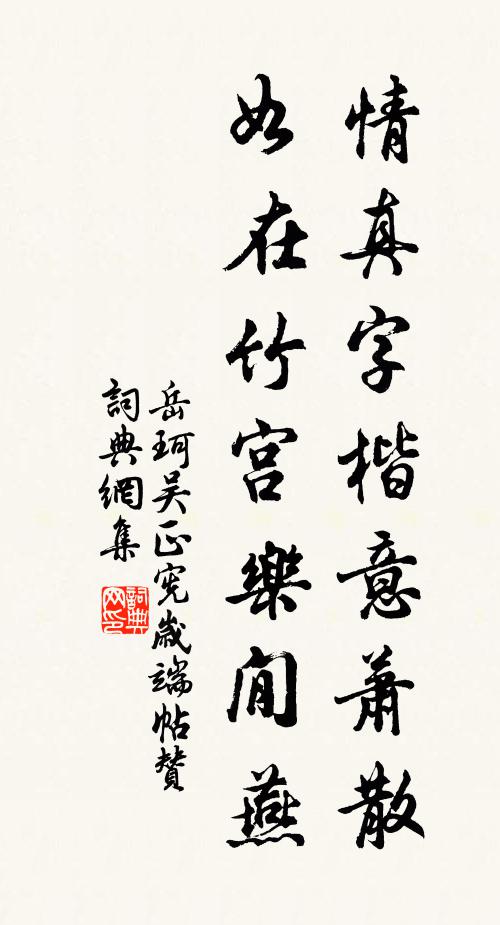 情真字楷意萧散
如在竹宫樂閒燕
岳珂吴正宪歲端帖贊
詞典網集
詞典网印